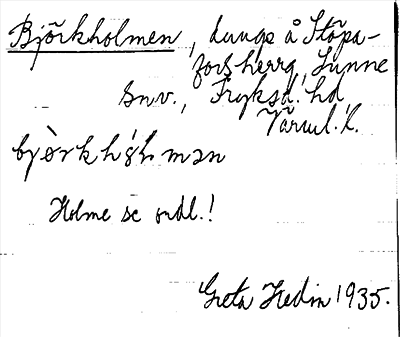 Björkholmen, lungs å Stöpa-
fors herrg, Sunne
snv., Fryksd. hd,
Värml. l.
bjǒrkhólmən
Holme se ordl.!
Greta Hedin 1935.